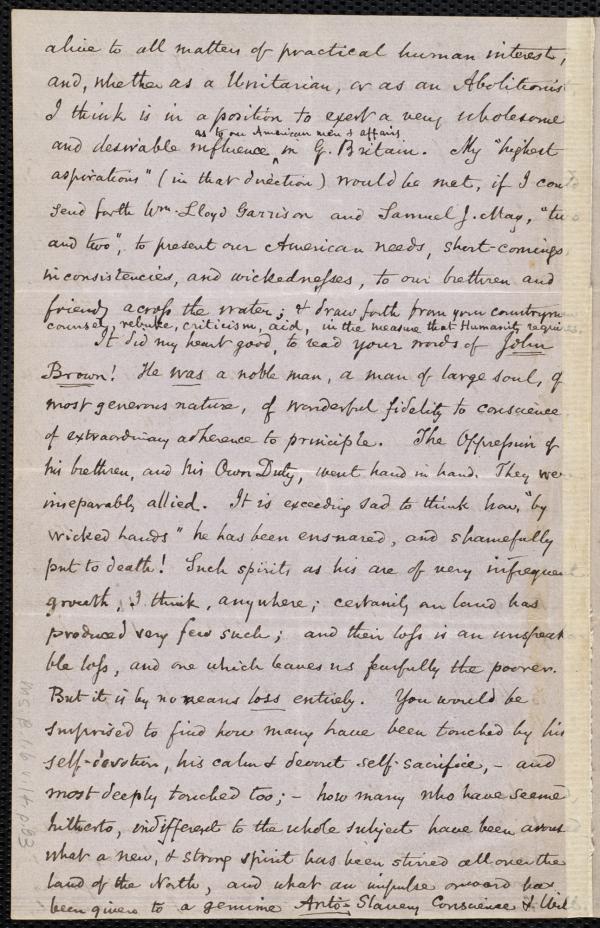 alive to all matters of practical human interest,
and, whether as a Unitarian, or as an Abolitionis
I think is in a position to exert a very wholesome
as to our American men & affairs
and desirable influence ^ in G. Britain. My "highest
aspirations" (in that direction) would be met, if I cou
send forth Wm. Lloyd Garrison and Samuel J. May, "tw
and two", to present our American needs, short-comings,
inconsistencies, and wickednesses, to our brethren and
friends across the water; & draw forth from your countrym
counsel, rebuke, criticism, aid, in the measure that Humanity requi
It did my heart good, to read your words of John
Brown! He was a noble man, a man of large soul, of
most generous nature, of wonderful fidelity to conscience
of extraordinary adherence to principle. The Oppression of
his brethren, and his Own Duty, went hand in hand. They we
inseparably allied. It is exceeding sad to think how, "by
wicked hands" he has been ensnared, and shamefully
put to death! Such spirits as his are of very infrequen
growth, I think, anywhere; certainly our land has
produced very few such; and their loss is an unspeak
ble loss, and one which leaves us fearfully the poorer.
But it is by no means loss entirely. You would be
surprised to find how many have been touched by his
self-devotion, his calm & devout self-sacrifice, - and
most deeply touched too; - how many who have seeme
hitherto, indifferent to the whole subject have been arous
what a new, & strong spirit has been stirred all over the
land of the North, and what an impulse onward has
been given to a genuine Anti-Slavery Conscience &